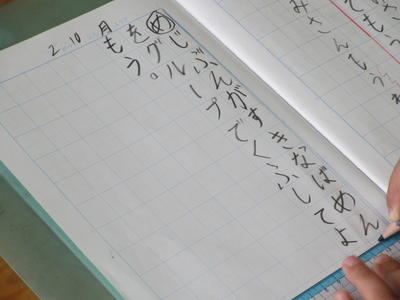 みさんもう
2.10 月
めじぶんがすきなばめん
をグループでくふうしてよ
もう。